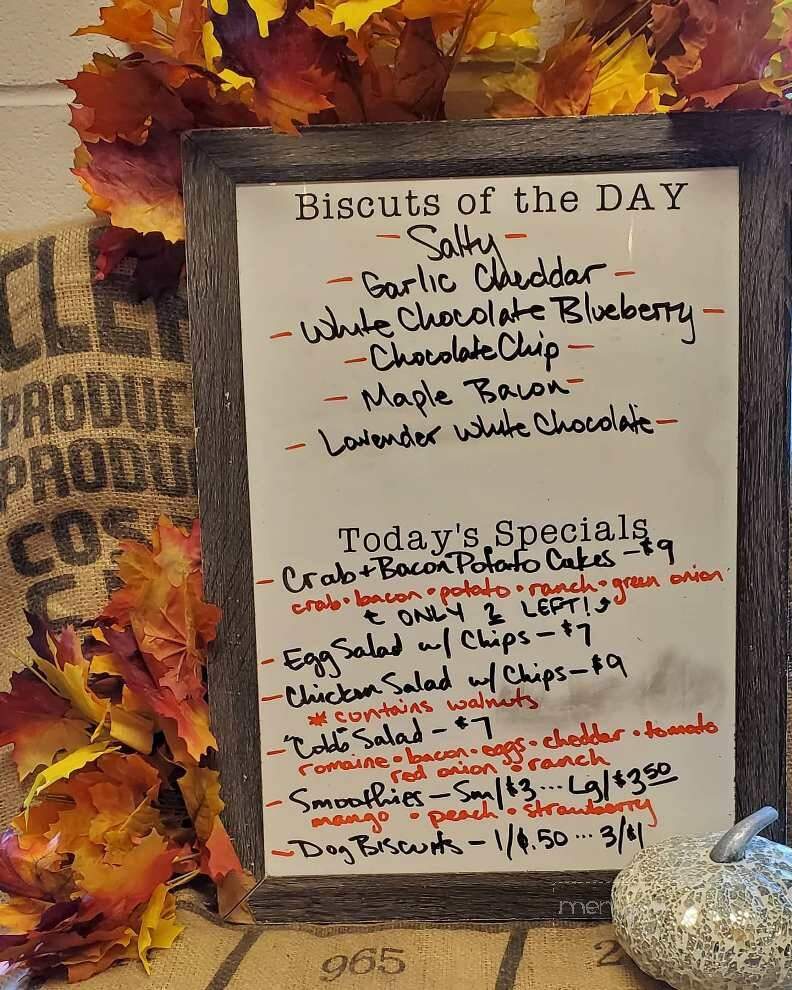 Biscuts of the DAY
- Salty -
- Garlic Cheddar -
- White Chocolate Blueberry -
- Chocolate Chip -
- Maple Bacon -
- Lavender White Chocolate -
Today's Specials
- Crab + Bacon Potato Cakes - $9
crab • bacon • potato • ranch • green onion
ONLY 2 LEFT!
- Egg Salad w/ Chips - $7
- Chicken Salad w/ Chips - $9
* contains walnuts
- "Cobb" Salad - $7
romaine • bacon • eggs • cheddar • tomato
red onion • ranch
- Smoothies - Sm/$3 ... Lg/$3.50
mango • peach • strawberry
- Dog Biscuits - 1/$.50 ... 3/$1
PRODUC
PRODU
COS
965
2
men